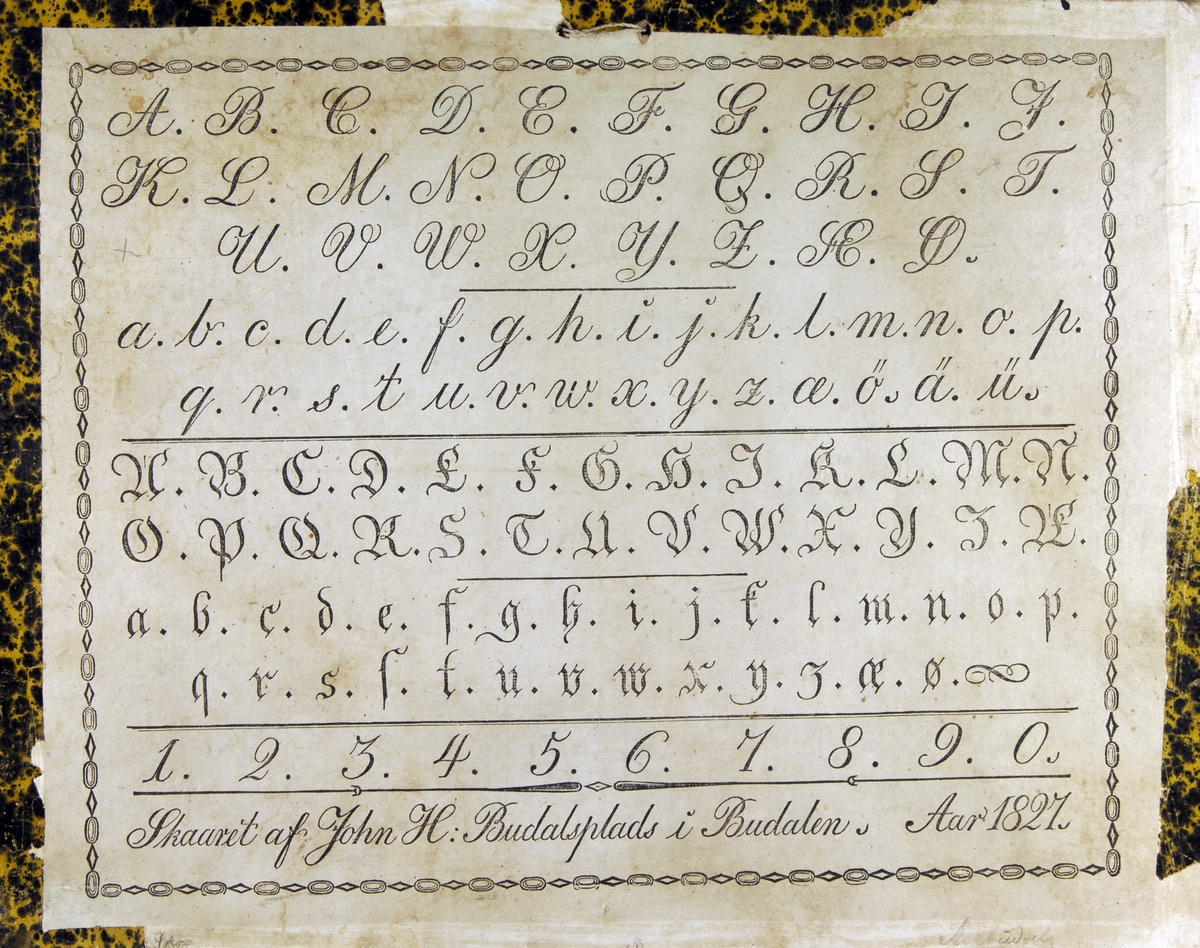 A. B. C. D. E. F. G. H. I. J.
K. L. M. N. O. P. Q. R. S. T.
U. V. W. X. Y. Z. Æ. Ø.
a. b. c. d. e. f. g. h. i. j. k. l. m. n. o. p.
q. r. s. t u. v. w. x. y. z. æ. ö. ä. ü.
A. B. C. D. E. F. G. H. I. K. L. M. N.
O. P. Q. R. S. T. U. V. W. X. Y. Z. Æ.
a. b. c. d. e. f. g. h. i. j. k. l. m. n. o. p.
q. r. s. ſ. t. u. v. w. x. y. z. æ. ø.
1. 2. 3. 4. 5. 6. 7. 8. 9. 0.
Skaaret af John H: Budalsplads i Budalen. Aar 1827.